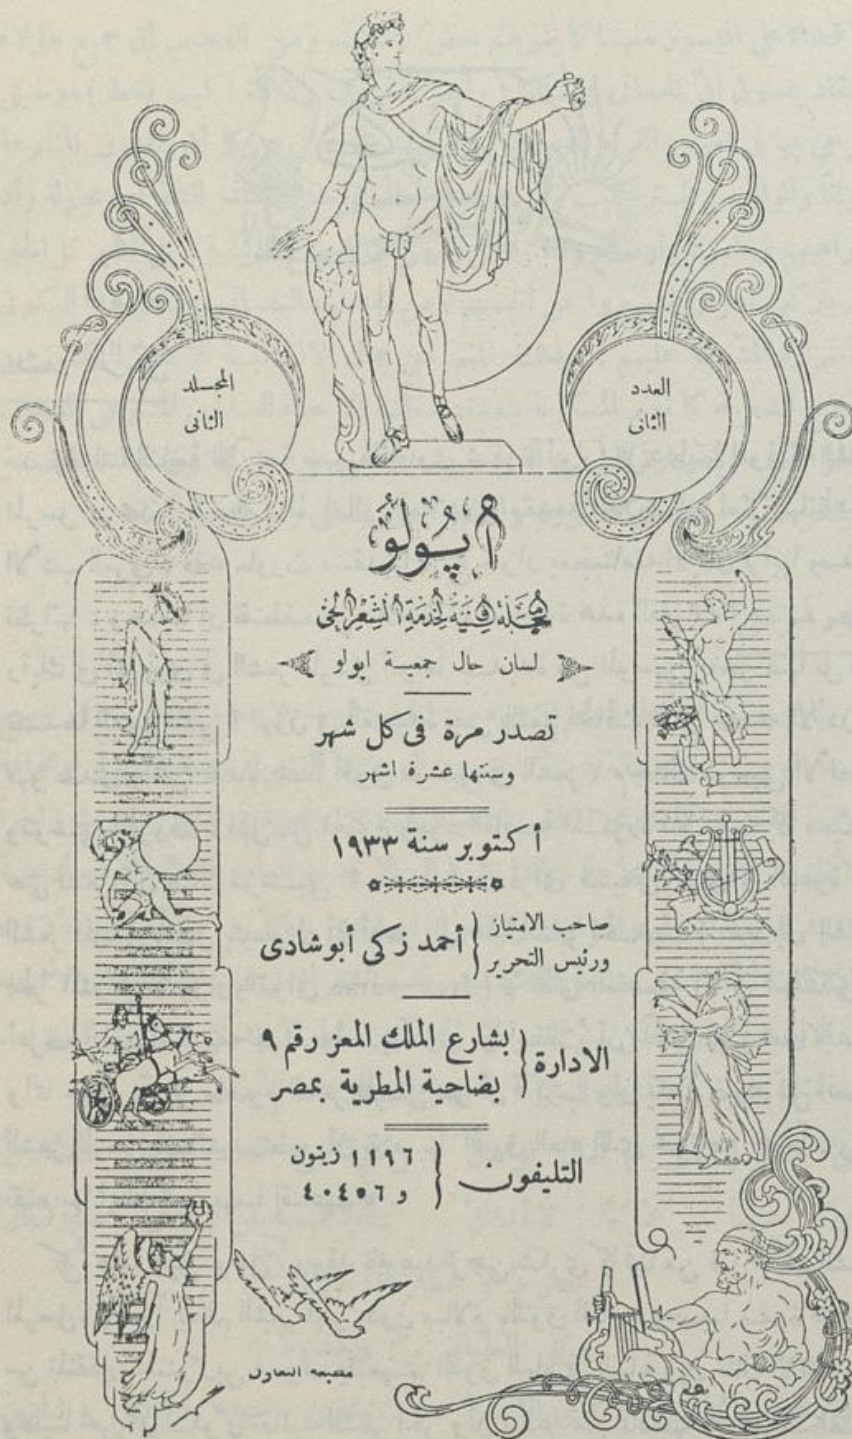 العدد
الثانى
المجلد
الثانى
أپولو
مجلة فنية لخدمة الشعر الحى
لسان حال جمعية ابولو
تصدر مرة فى كل شهر
وسنتها عشرة اشهر
أكتوبر سنة ١٩٣٣
صاحب الامتياز
ورئيس التحرير
أحمد زكى أبو شادى
الادارة
بشارع الملك المعز رقم ٩
بضاحية المطرية بمصر
التليفون
١١٩٦ زيتون
و ٤٠٤٥٦
مطبعة التعاون